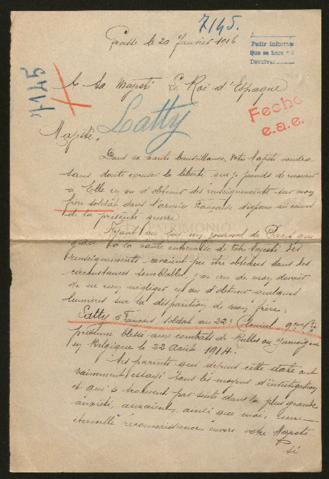 7145.
Grasse le 20 Janvier 1916
Pedir informes
que se hara
Devolver
7145
A Sa Majesté Le Roi d'Espagne
Fecho
e.a.e.
Latty
Majesté,
Dans sa haute bienveillance, votre Majesté voudra
sans doute excuser la liberté que je prends de recourir
à Elle en vue d'obtenir des renseignements sur mon
frère soldat dans l'armée Française disparu au cours
de la présente guerre.
Ayant lu sur un journal de Paris que
grâce à la haute entremise de votre Majesté des
renseignements avaient pu être obtenus dans des
circonstances semblables, j'ai cru de mon devoir
de ne rien négliger en vue d'obtenir quelque
lumière sur la disparition de mon frère,
Latty François, soldat au 22e Colonial, 9me Cie
présumé blessé aux combats de
en Belgique le 22 Août 1914.
Mes parents qui depuis cette date ont
vainement essayé tous les moyens d'investigation
et qui se trouvent par suite dans la plus grande
anxiété, auraient, ainsi que moi, une
éternelle reconnaissance envers votre Majesté
si